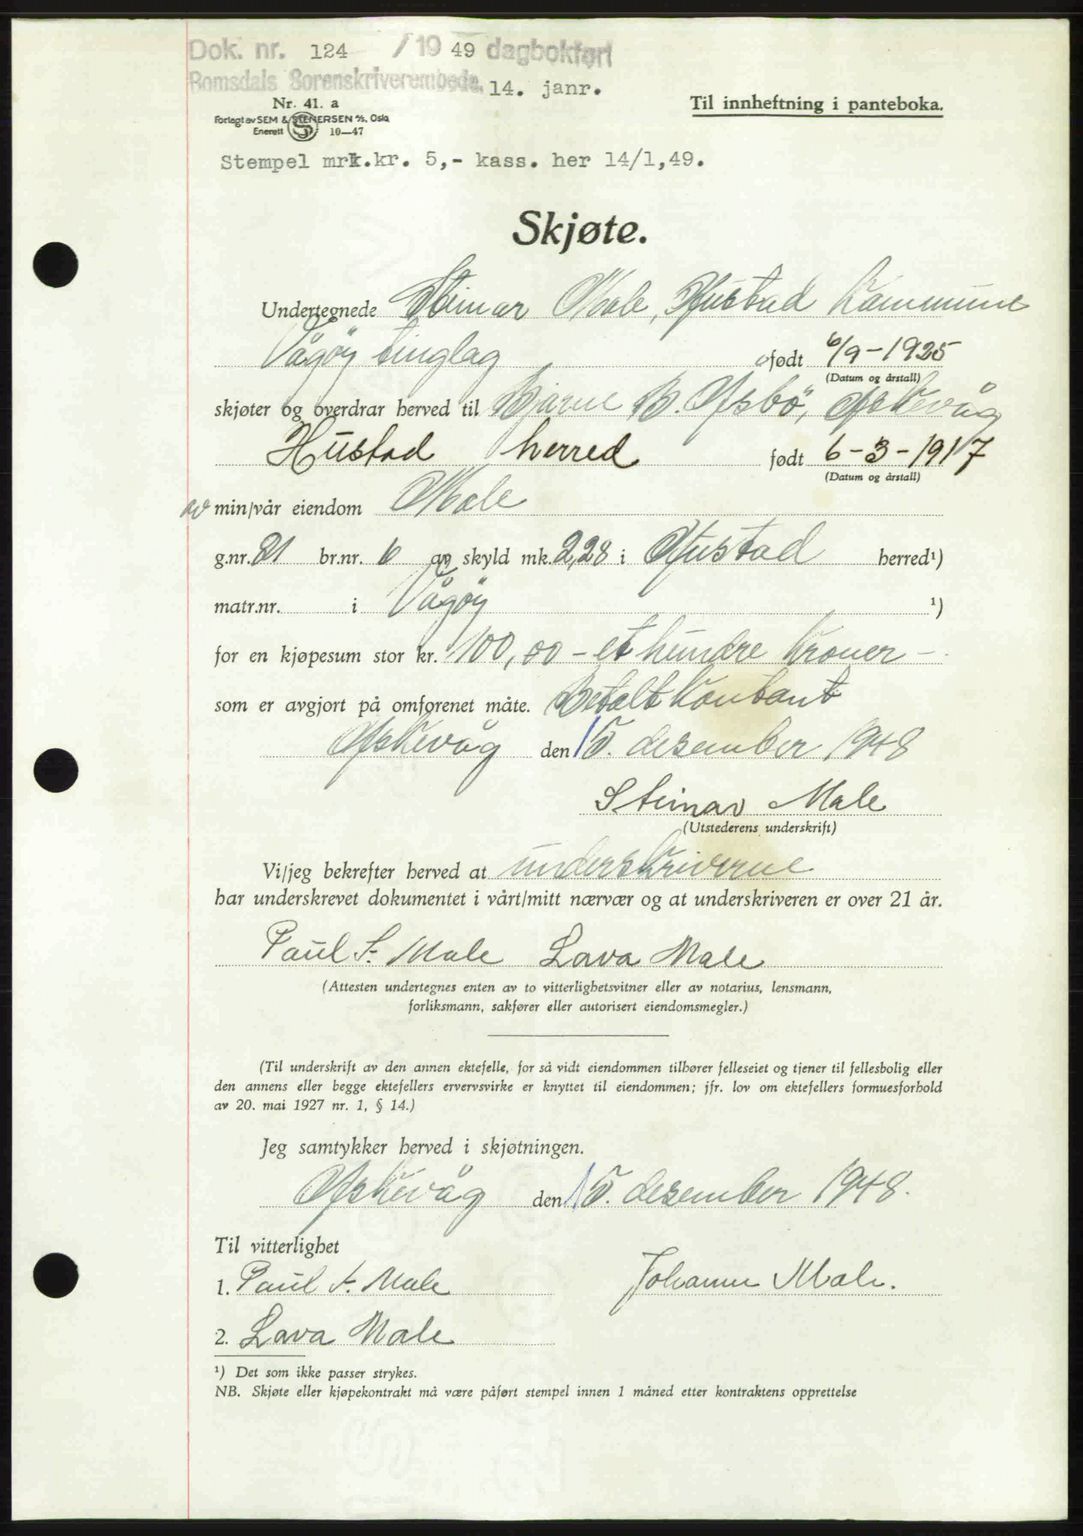 Dok. nr. 124 / 1949 dagbokført
Romsdals Sorenskriverembede, 14. janr.
Nr. 41. a
Forlagt av SEM & STENERSEN A/S, Oslo
Enerett S 10—47
Til innheftning i panteboka.
Stempel mrk.kr. 5,- kass. her 14/1,49.
Skjøte.
Undertegnede Steinar Male, Hustad kommune
Vågøy tinglag født 6/9-1925
(Datum og årstall)
skjøter og overdrar herved til Bjarne B. Ofsbö, Ofskevåg
Hustad herred født 6-3-1917
(Datum og årstall)
av min/vår eiendom Male
g.nr. 81 br.nr. 6 av skyld mk. 2,28 i Hustad herred¹)
matr.nr. i Vågøy ¹)
for en kjøpesum stor kr. 100,00 - et hundre kroner -
som er avgjort på omforenet måte. Betalt kontant
Ofskevåg den 15. desember 1948
Steinar Male
(Utstederens underskrift)
Vi/jeg bekrefter herved at underskriverne
har underskrevet dokumentet i vårt/mitt nærvær og at underskriveren er over 21 år.
Paul S. Male Lava Male
(Attesten undertegnes enten av to vitterlighetsvitner eller av notarius, lensmann,
forliksmann, sakfører eller autorisert eiendomsmegler.)
(Til underskrift av den annen ektefelle, for så vidt eiendommen tilhører felleseiet og tjener til fellesbolig eller
den annens eller begge ektefellers ervervsvirke er knyttet til eiendommen; jfr. lov om ektefellers formuesforhold
av 20. mai 1927 nr. 1, § 14.)
Jeg samtykker herved i skjøtningen.
Ofskevåg den 15. desember 1948.
Til vitterlighet
1. Paul S. Male Johanne Male.
2. Lava Male
¹) Det som ikke passer strykes.
NB. Skjøte eller kjøpekontrakt må være påført stempel innen 1 måned etter kontraktens opprettelse